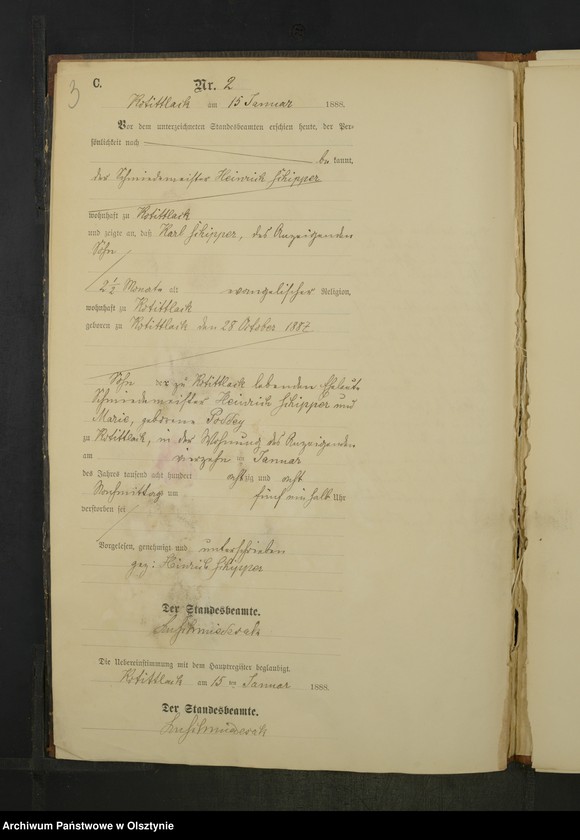 3
C. Nr. 2
am 15 Januar 1888.
Vor dem unterzeichneten Standesbeamten erschien heute, der Per-
sönlichkeit nach
be kannt,
der Schmiedemeister Heinrich Schipper
wohnhaft zu
und zeigte an, daß Karl Schipper, des Anzeigenden
Sohn
2 1/2 Monate alt evangelischer Religion,
wohnhaft zu
geboren zu den 28 October 1887
Sohn der zu lebenden Eheleute
Schmiedemeister Heinrich Schipper und
Marie, geborene
zu in der Wohnung des Anzeigenden
am vierzehn ten Januar
des Jahres tausend acht hundert achtzig und acht
Nachmittags um fünf ein halb Uhr
verstorben sei
Vorgelesen, genehmigt und unterschrieben
gez: Heinrich Schipper
Der Standesbeamte.
Die Uebereinstimmung mit dem Hauptregister beglaubigt.
am 15 ten Januar 1888.
Der Standesbeamte.
Archiwum Państwowe w Olsztynie